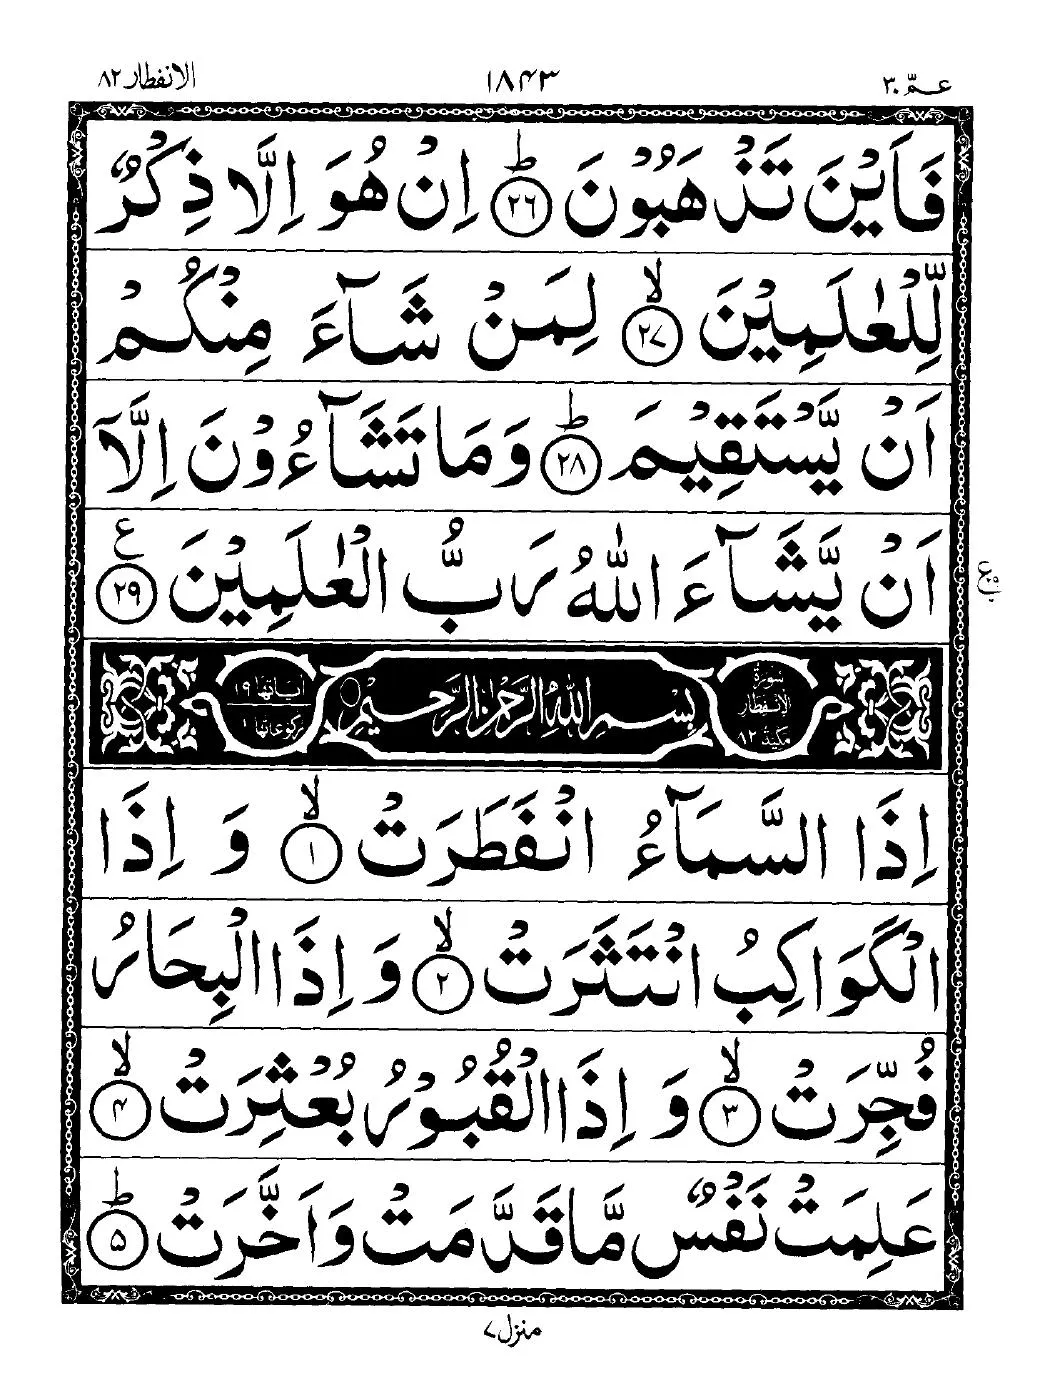 عمّ ۳۰
۱۸۴۳
الانفطار ۸۲
فَاَيْنَ تَذْهَبُوْنَ ؕ﴿۲۶﴾ اِنْ هُوَ اِلَّا ذِكْرٌ
لِّلْعٰلَمِيْنَ ۙ﴿۲۷﴾ لِمَنْ شَآءَ مِنْكُمْ
اَنْ يَّسْتَقِيْمَ ؕ﴿۲۸﴾ وَمَا تَشَآءُوْنَ اِلَّاۤ
اَنْ يَّشَآءَ اللّٰهُ رَبُّ الْعٰلَمِيْنَ ﴿۲۹﴾ ع
سورة الانفطار مكية ۸۲
بسم الله الرحمن الرحيم
اٰیاتها ۱۹
ركوعاتها ۱
اِذَا السَّمَآءُ انْفَطَرَتْ ۙ﴿۱﴾ وَ اِذَا
الْكَوَاكِبُ انْتَثَرَتْ ۙ﴿۲﴾ وَ اِذَا الْبِحَارُ
فُجِّرَتْ ۙ﴿۳﴾ وَ اِذَا الْقُبُوْرُ بُعْثِرَتْ ۙ﴿۴﴾
عَلِمَتْ نَفْسٌ مَّا قَدَّمَتْ وَ اَخَّرَتْ ؕ﴿۵﴾
منزل ۷